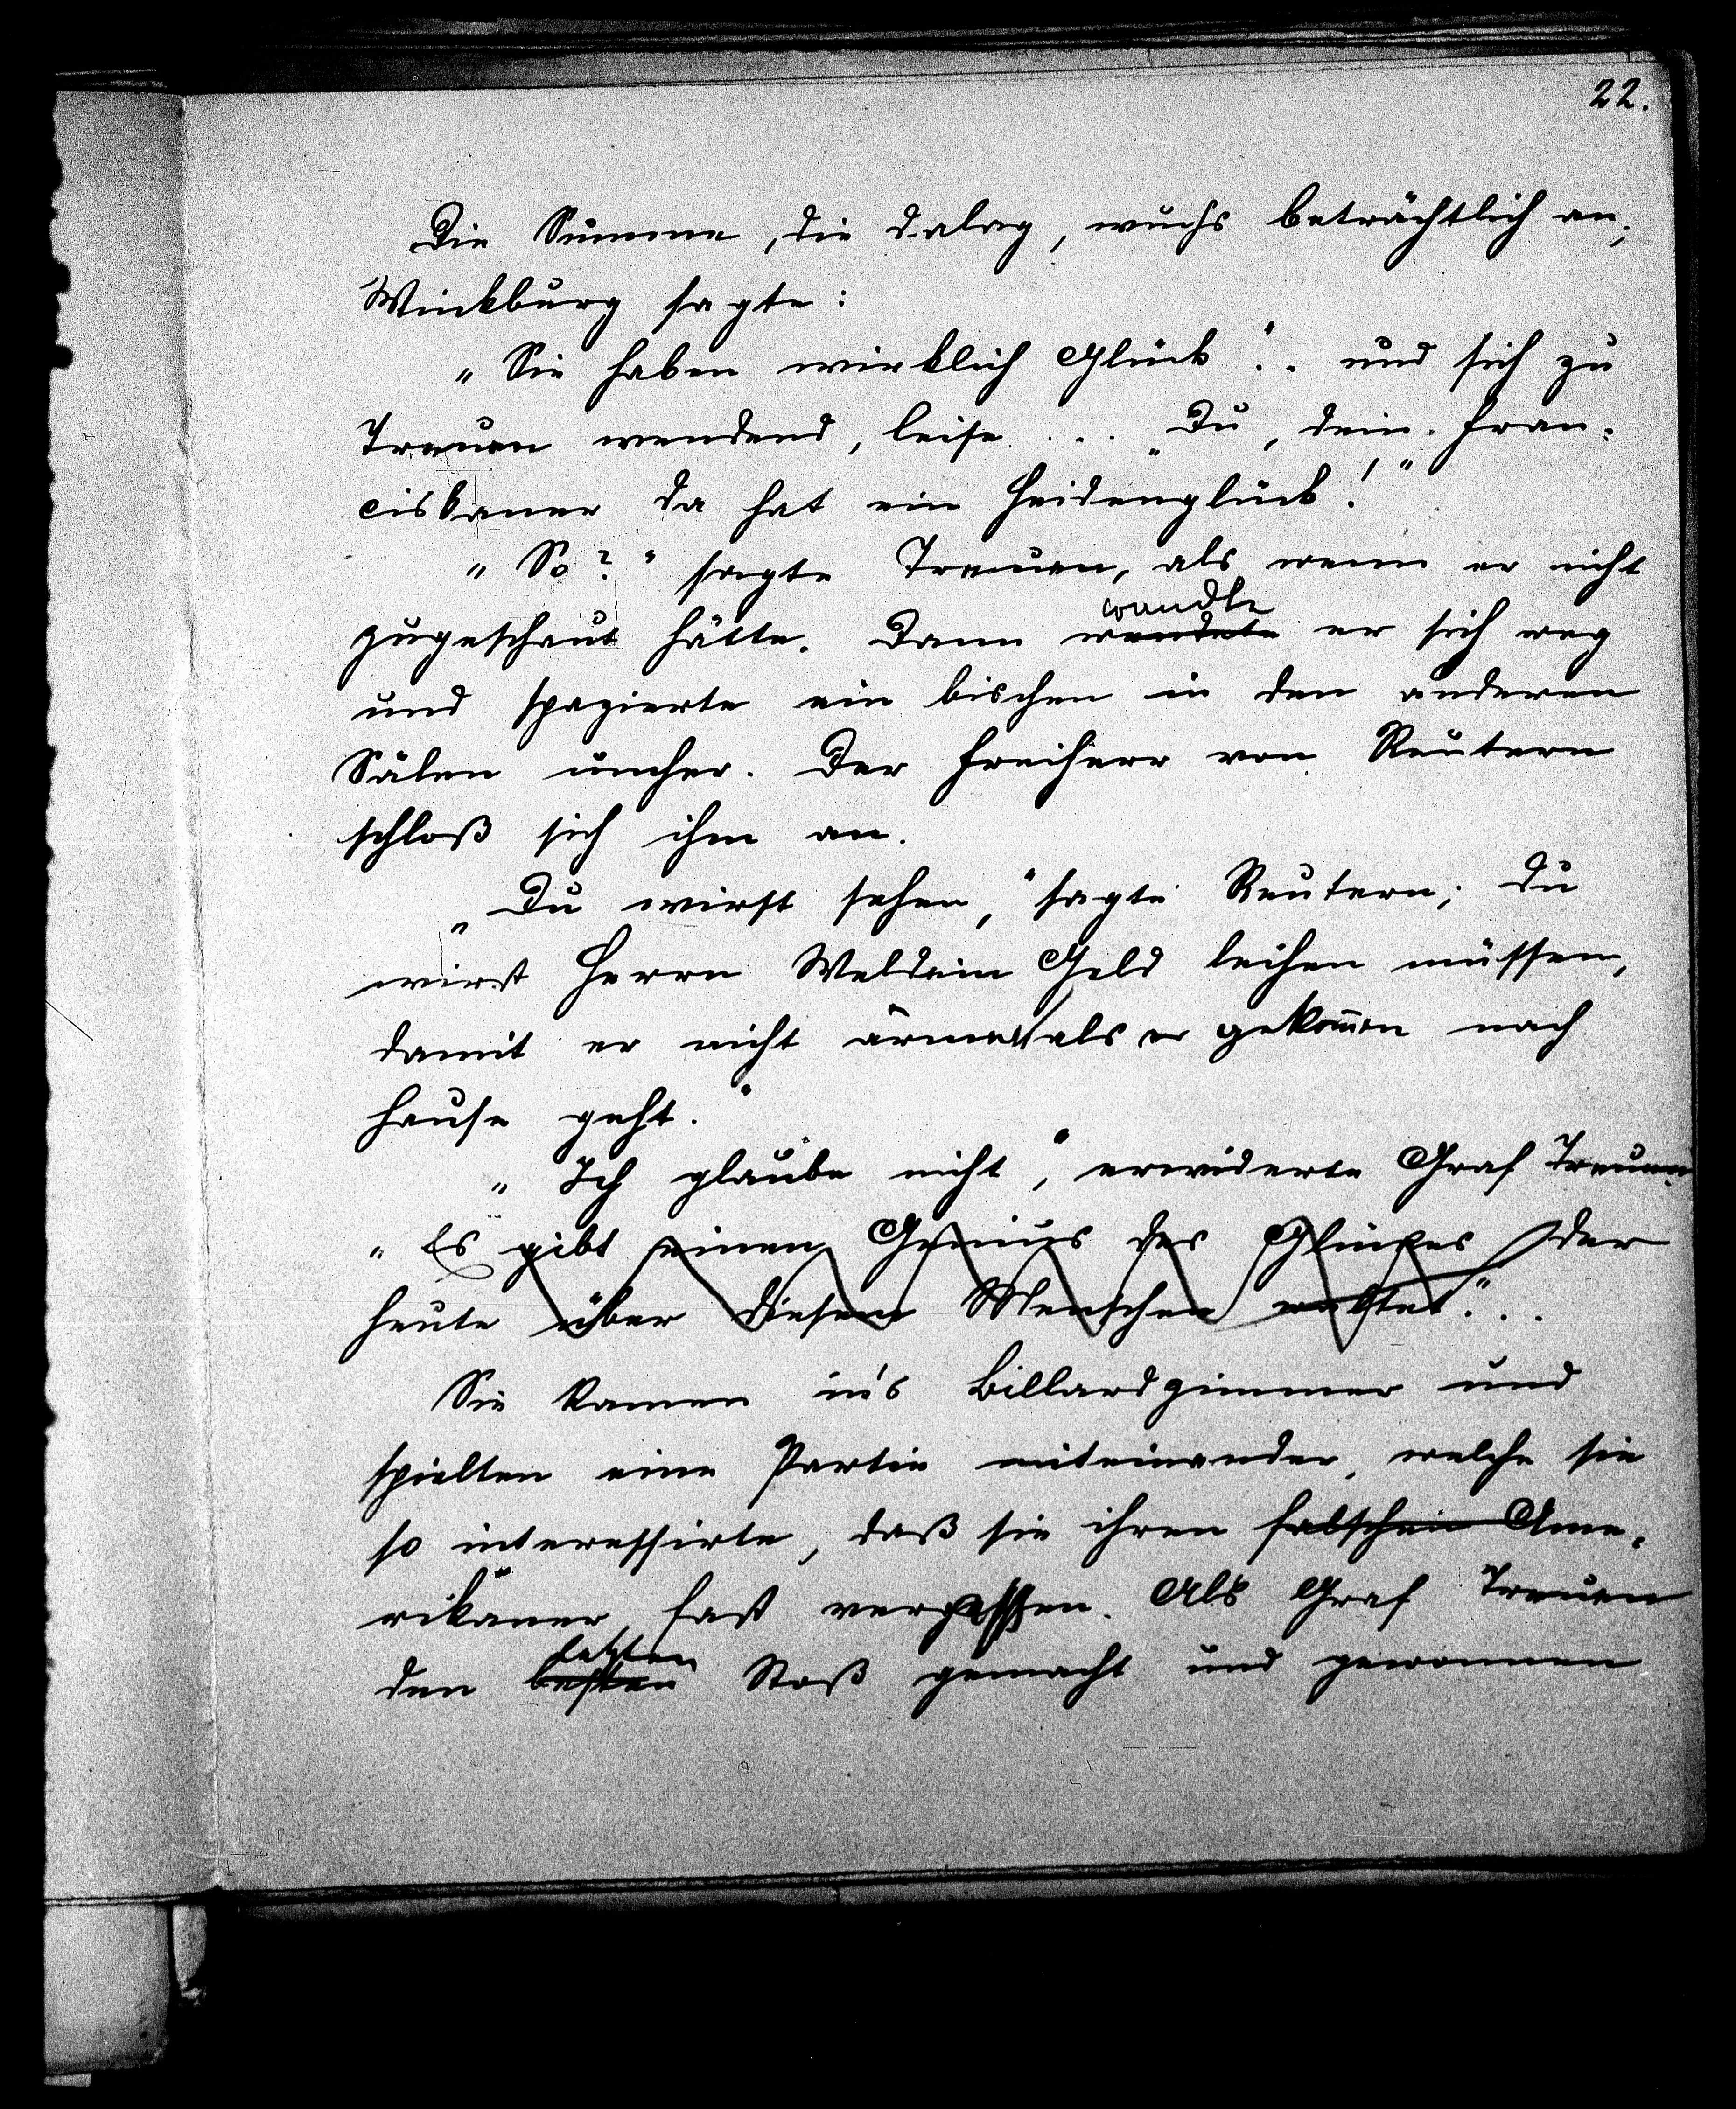 22.
Die Summe, die dalag, wuchs beträchtlich an;
Winkburg sagte:
„Sie haben wirklich Glück".. und sich zu
Treuen wendend, leise ... „Du, dein Fran-
ciskaner da hat ein Heidenglück!"
„So?" sagte Treuen, als wenn er nicht
wandte
zugeschaut hätte. Dann wendete er sich weg
und spazierte ein bischen in den anderen
Sälen umher. Der Freiherr von Reutern
schloß sich ihm an.
„Du wirst sehen," sagte Reutern; Du
wirst Herrn Weldein Geld leihen müssen,
damit er nicht ärmer als er gekom̄en nach
Hause geht."
„Ich glaube nicht," erwiderte Graf Treuen.
„Es gibt einen Genius des Glückes der
heute über diesem Menschen waltet."..
Sie kamen in's Billardzimmer und
spielten eine Partie miteinander, welche sie
so interessirte, daß sie ihren falschen Ame-
rikaner fast vergessen. Als Graf Treuen
letzten
den besten Stoß gemacht und gewonnen